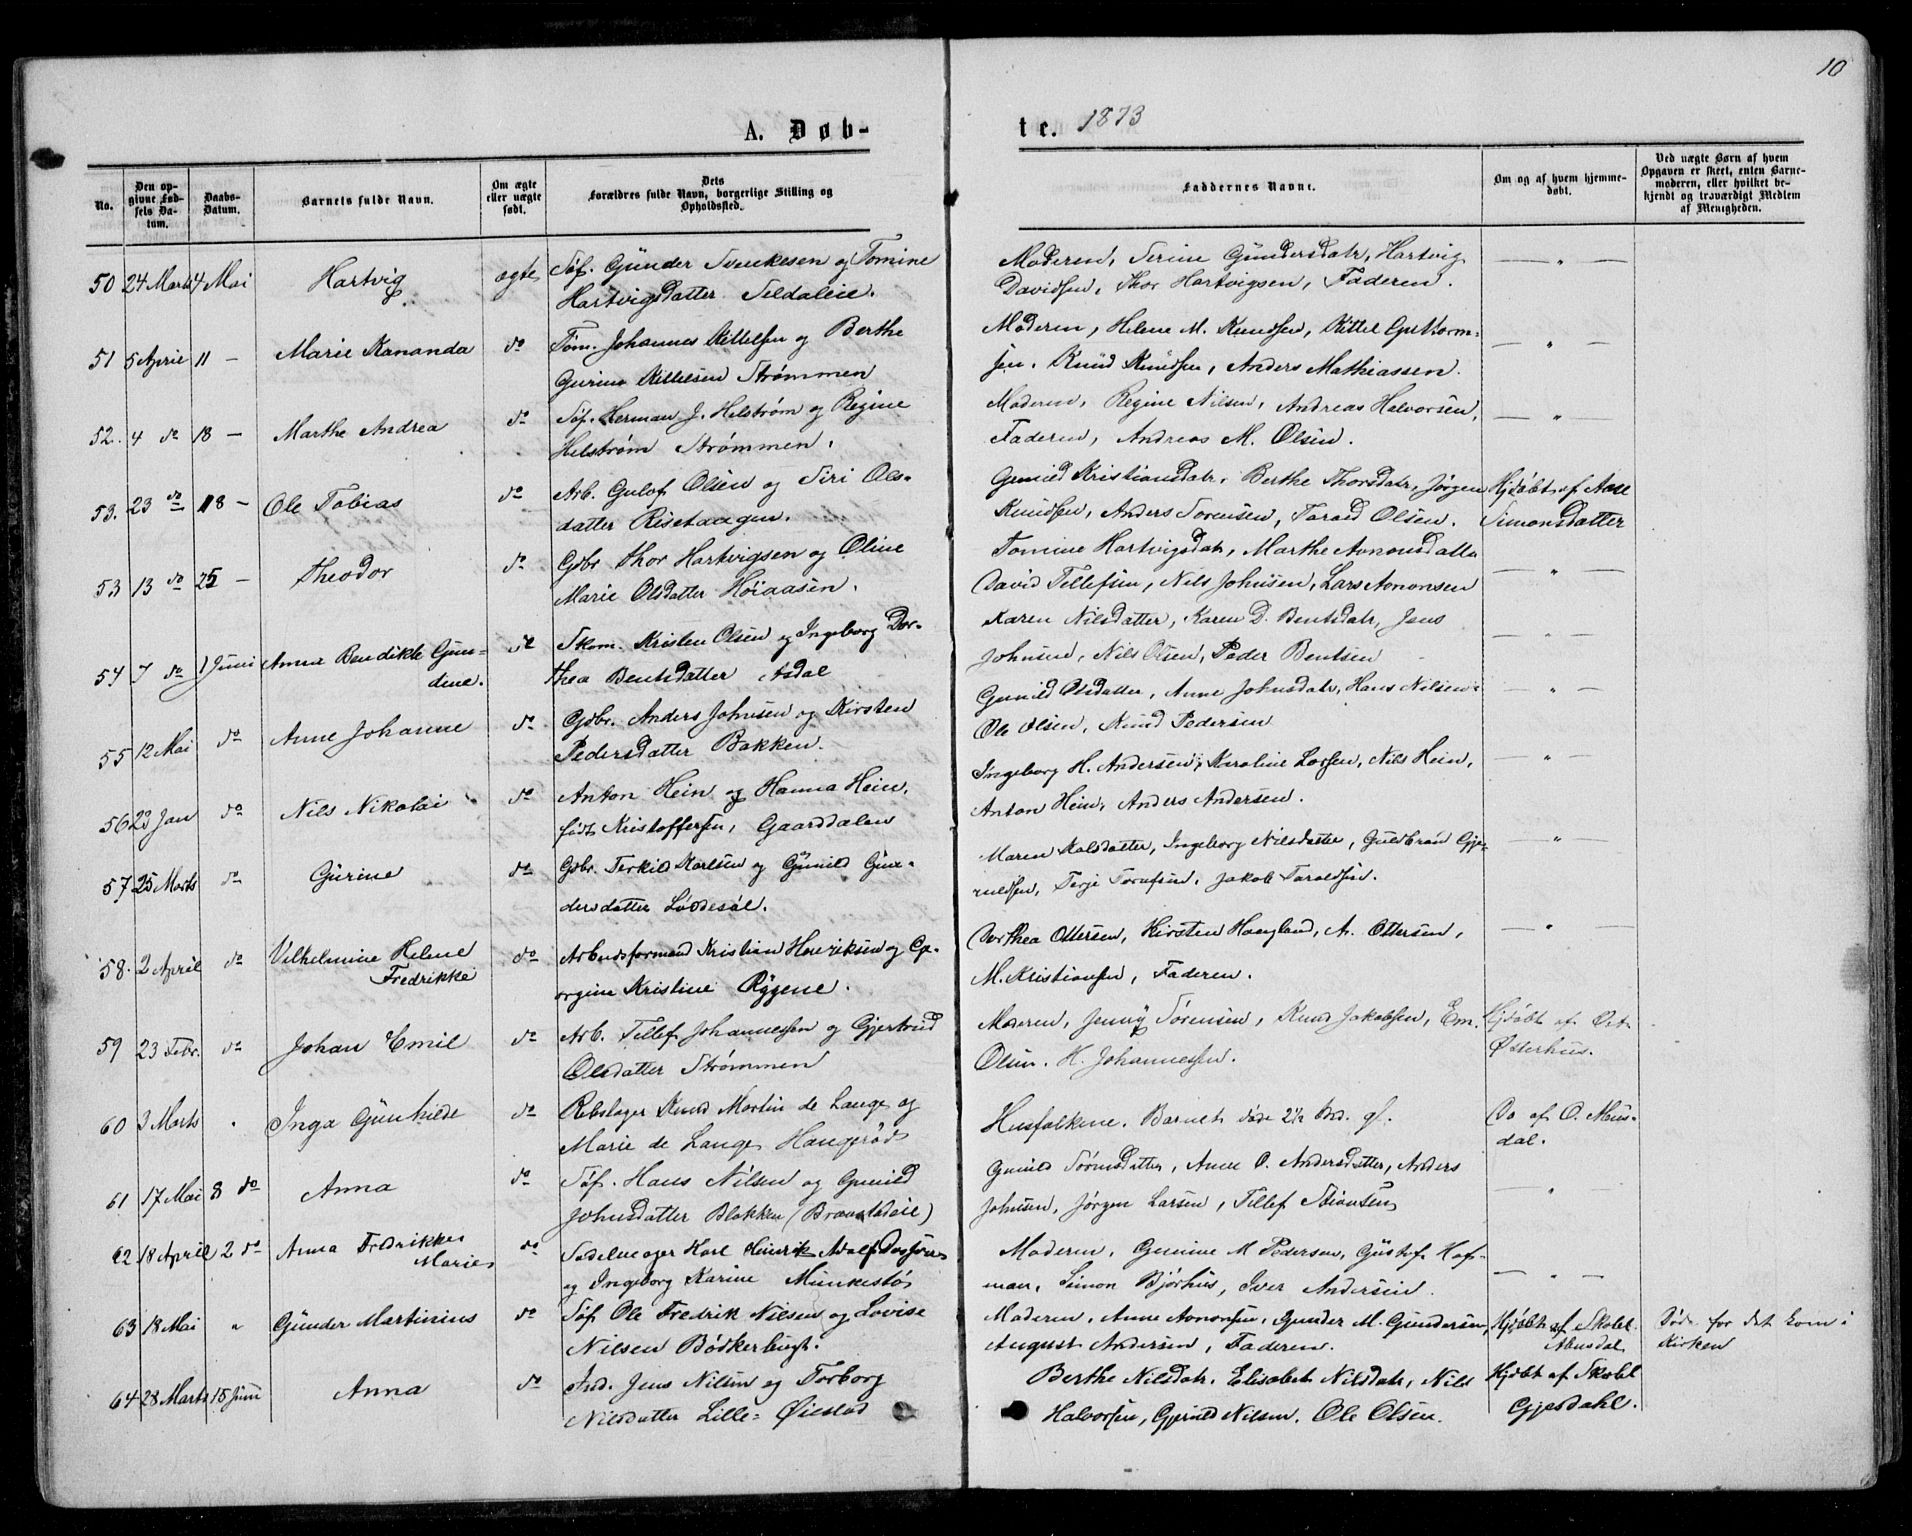 10
A. Døb-
te. 1873
No.
Den op-
givne Fød-
sels Da-
tum.
Daabs-
Datum.
Barnets fulde Navn.
Om ægte
eller uægte
født.
Dets
Forældres fulde Navn, borgerlige Stilling og
Opholdssted.
Faddernes Navne.
Om og af hvem hjemme-
døbt.
Ved uægte Børn af hvem
Opgaven er skeet, enten Barne-
moderen, eller hvilket be-
kjendt og troværdigt Medlem
af Menigheden.
50 24 Marts 4 Mai Hartvig ægte Søf. Gunder Svenkesen og Tomine
Hartvigsdatter Seldaleie.
Moderen, Serine Gundersdatr, Hartvig — " —
Davidsen, Thor Hartvigsen, Faderen.
51 5 April 11 — Marie Kananda do Tøm. Johannes Kittelsen og Berthe
Gurine Kittelsen Strømmen
Moderen, Helene M. Knudsen, Kittel Guttorm- — " —
sen, Knud Knudsen, Anders Mathiassen.
52. 4 do 18 — Marthe Andrea do Søf. Herman J. Helstrøm og Regine
Helstrøm Strømmen.
Moderen, Regine Nilsen, Andreas Halvorsen, — " —
Faderen, Andreas M. Olsen.
53. 23 do 18 — Ole Tobias do Arb. Gulof Olsen og Siri Ols-
datter Risehaugen.
Gunild Kristiansdatr, Berthe Thorsdatr, Jørgen Hjdøbt af Aase
Knudsen, Anders Sørensen, Tarald Olsen. Simonsdatter
53 13 do 25 — Theodor do Gbr. Thor Hartvigsen og Oline
Marie Olsdatter Høiaasen.
Tomine Hartvigsdatr, Marthe Aanonsdatter
David Tellefsen, Nils Johnsen, Lars Aanonsen — " —
54 7 do 1 Juni Anna Bendikte Gun-
dine. do Skom. Kristen Olsen og Ingeborg Dor-
thea Bentsdatter Asdal
Karen Nilsdatter, Karen D. Bentsdatr, Jens — " —
Johnsen, Nils Olsen, Peder Bentsen
55 12 Mai do Anne Johanne do Gbr. Anders Johnsen og Kirsten
Pedersdatter Bakken.
Gunild Olsdatter, Anne Johnsdatr, Hans Nilsen — " —
Ole Olsen, Knud Pedersen
56 23 Jan do Nils Nikolai do Anton Hein og Hanna Hein,
født Kristoffersen, Gaarddalen
Ingeborg H. Andersen, Karoline Larsen, Nils Hein, — " —
Anton Hein, Anders Andersen.
57 25 Marts do Gurine do Gbr. Terkild Karlsen og Gunild Gun-
dersdatter Løddesøl.
Maren Kalsdatter, Ingeborg Nilsdatter, Guldbrand Gje- — " —
ruldsen, Terje Torufsen, Jakob Taraldsen.
58. 2 April do Vilhelmine Helene
Fredrikke do Arbeidsformand Kristian Henriksen og Ge-
orgine Kristine Rygene.
Dorthea Ottersen, Kirsten Haugland, A. Ottersen, — " —
M. Kristiansen, Faderen.
59 23 Febr. do Johan Emil do Arb. Tellef Johannessen og Gjertrud
Olsdatter Strømmen
Moderen, Jenny Sørensen, Knud Jakobsen, Em. Hjdøbt af
Olsen. H. Johannessen. Østerhus.
60 3 Marts " Inga Gunhilde do Rebslager Knud Martin de Lange og
Marie de Lange Haugerød
Husfolkene. Barnet døde 2½ Md. gl. Do af O. Maus-
dal.
61 17 Mai 8 do Anna do Søf. Hans Nilsen og Gunild
Johnsdatter Blakken (Braastadeie)
Gunild Sørensdatter, Anne O. Andersdatter, Anders
Johnsen, Jørgen Larsen, Tellef Stiansen — " —
62 18 April 2 do Anna Fredrikke
Marie do Sadelmager Karl Hinrik Adolf
og Ingeborg Karine Munkestø
Moderen, Gunine M Pedersen, Gustof Hof-
man, Simon Bjørhus, Iver Andersen. — " —
63 18 Mai " Gunder Martinius do Søf Ole Fredrik Nilsen og Lovise
Nilsen Bødkerbugt.
Moderen, Anne Aanonsen, Gunder M. Gundersen, Hjdøbt af Skoll. Døde før det kom i
August Andersen, Faderen. Kirken
64 28 Marts 15 Juni Anna do Ind. Jens Nilsen og Torborg
Nilsdatter Lille-Øiestad
Berthe Nilsdatr, Elisabet Nilsdatr, Nils Hjdøbt af Skoll
Halvorsen, Gjeruld Nilsen, Ole Olsen. Gjesdahl.